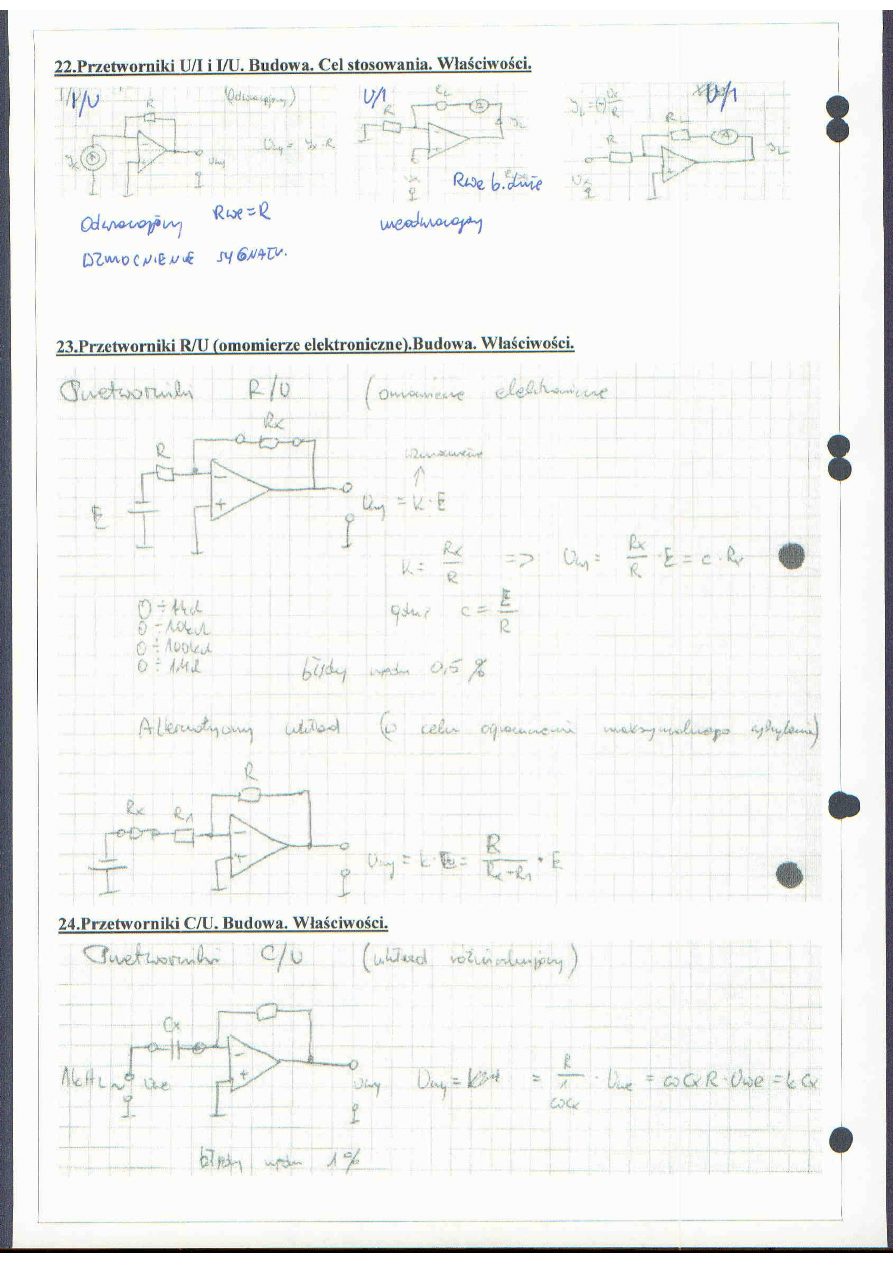 22.Przetworniki U/I i I/U. Budowa. Cel stosowania. Właściwości.
I/U
R
(Odwracający)
Uwy = Jx · R
Jx
Uwy
Odwracający Rwe = R
WZMOCNIENIE SYGNAŁU.
U/I
RL
R
JL
Ux
Rwe b. duże
nieodwracający
U/I
JL = (-) Ux/R
RL
R
A
JL
Ux
23.Przetworniki R/U (omomierze elektroniczne).Budowa. Właściwości.
Przetworniki R/U (omomierze elektroniczne
Rx
R
E
wzmocnienie
Uwy = K · E
K = Rx/R => Uwy = Rx/R · E = c · Rx
gdzie c = E/R
0 ÷ 1kΩ
0 ÷ 10kΩ
0 ÷ 100kΩ
0 ÷ 1MΩ
błędy rzędu 0,5 %
Alternatywny układ (w celu ograniczenia maksymalnego wychylenia)
R
Rx R1
Uwy = k · E = R/(Rx-R1) · E
24.Przetworniki C/U. Budowa. Właściwości.
Przetworniki C/U (układ różniczkujący)
Cx
1kHz ~ Uwe
Uwy
Uwy = = R/(1/ωCx) · Uwe = ωCxR · Uwe = k Cx
błędy rzędu 1%